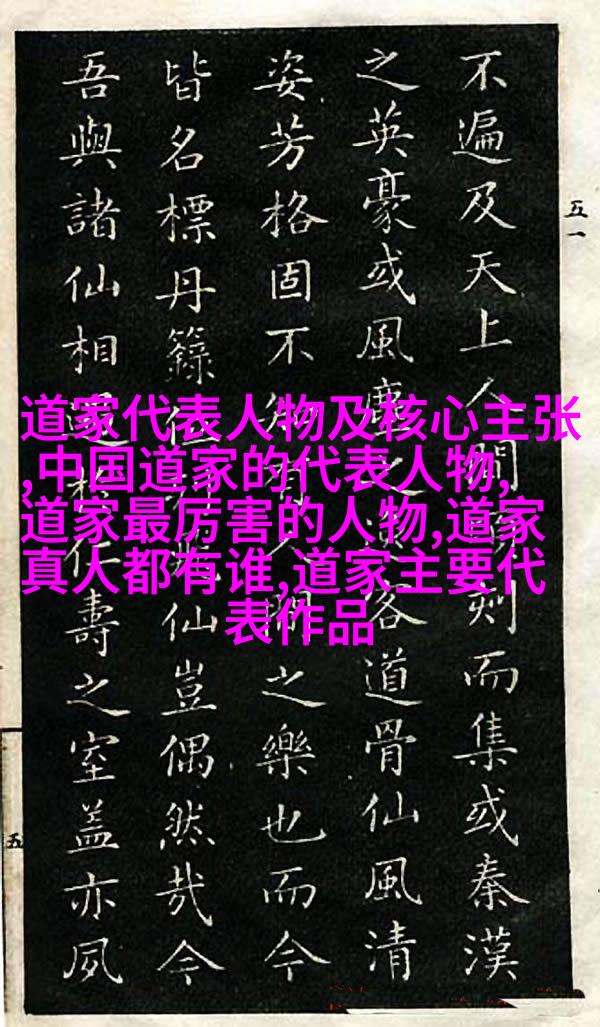 道家代表人物及核心主张
,中国道家的代表人物,
道家最厉害的人物,道家
真人都有谁,道家主要代
表作品
五一
不遍及天上人間刻而集或秦漢
之英豪或風塵之客道骨仙風清
姿芳格固不知有人間之樂也而今
皆名標丹籙仙豈偶然哉今
吾與諸仙相仁壽之室蓋亦夙
五